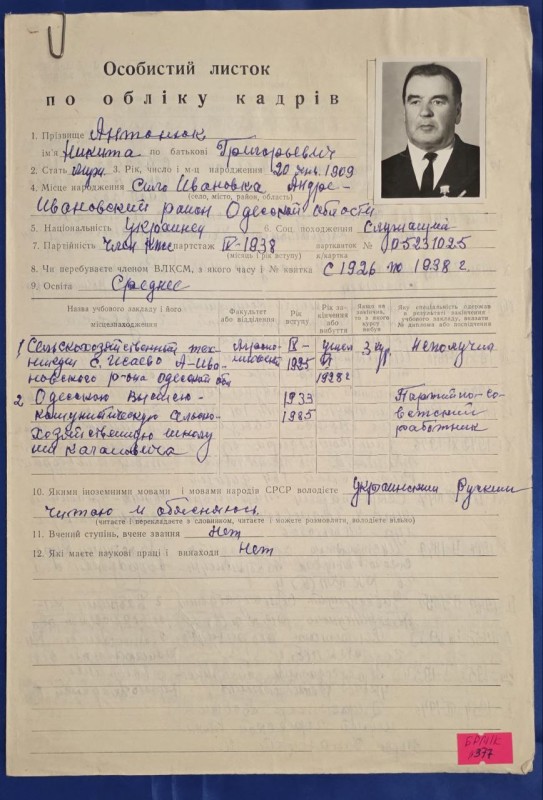 Особистий листок
по обліку кадрів
1. Прізвище Антонюк
ім'я Никита по батькові Григорьевич
2. Стать муж. 3. Рік, число і м-ц народження 20 янв. 1909
4. Місце народження Село Ивановка Андре-
(село, місто, район, область)
Ивановский район Одесской области
5. Національність Украинец 6. Соц. походження Служащий
7. Партійність член КПСС партстаж IV-1938 партквиток № 05231025
(місяць і рік вступу) а/картка
8. Чи перебуваєте членом ВЛКСМ, з якого часу і № квитка с 1926 по 1938 г.
9. Освіта Среднее
Назва учбового закладу і його місцезнаходження
Факультет або відділення
Рік вступу
Рік закінчення або вибуття
Якщо не закінчив, то з якого курсу вибув
Яку спеціальність одержав в результаті закінчення учбового закладу, вказати № диплома або посвідчення
1 Сельскохозяйственный тех-
никум С. Исаево А-Ива-
новского р-она Одесской обл
IX-
1925
1928 г
3 кур.
Неполучил
2 Одесскую высшую
коммунистическую сельско-
хозяйственную школу
им Кагановича
1933
1935
Партийно-со-
ветский
работник
10. Якими іноземними мовами і мовами народів СРСР володієте Украинским Руским
читаю и обясняюсь
(читаєте і перекладаєте з словником, читаєте і можете розмовляти, володієте вільно)
11. Вчений ступінь, вчене звання Нет
12. Які маєте наукові праці і винаходи Нет
БРЧІК
1377